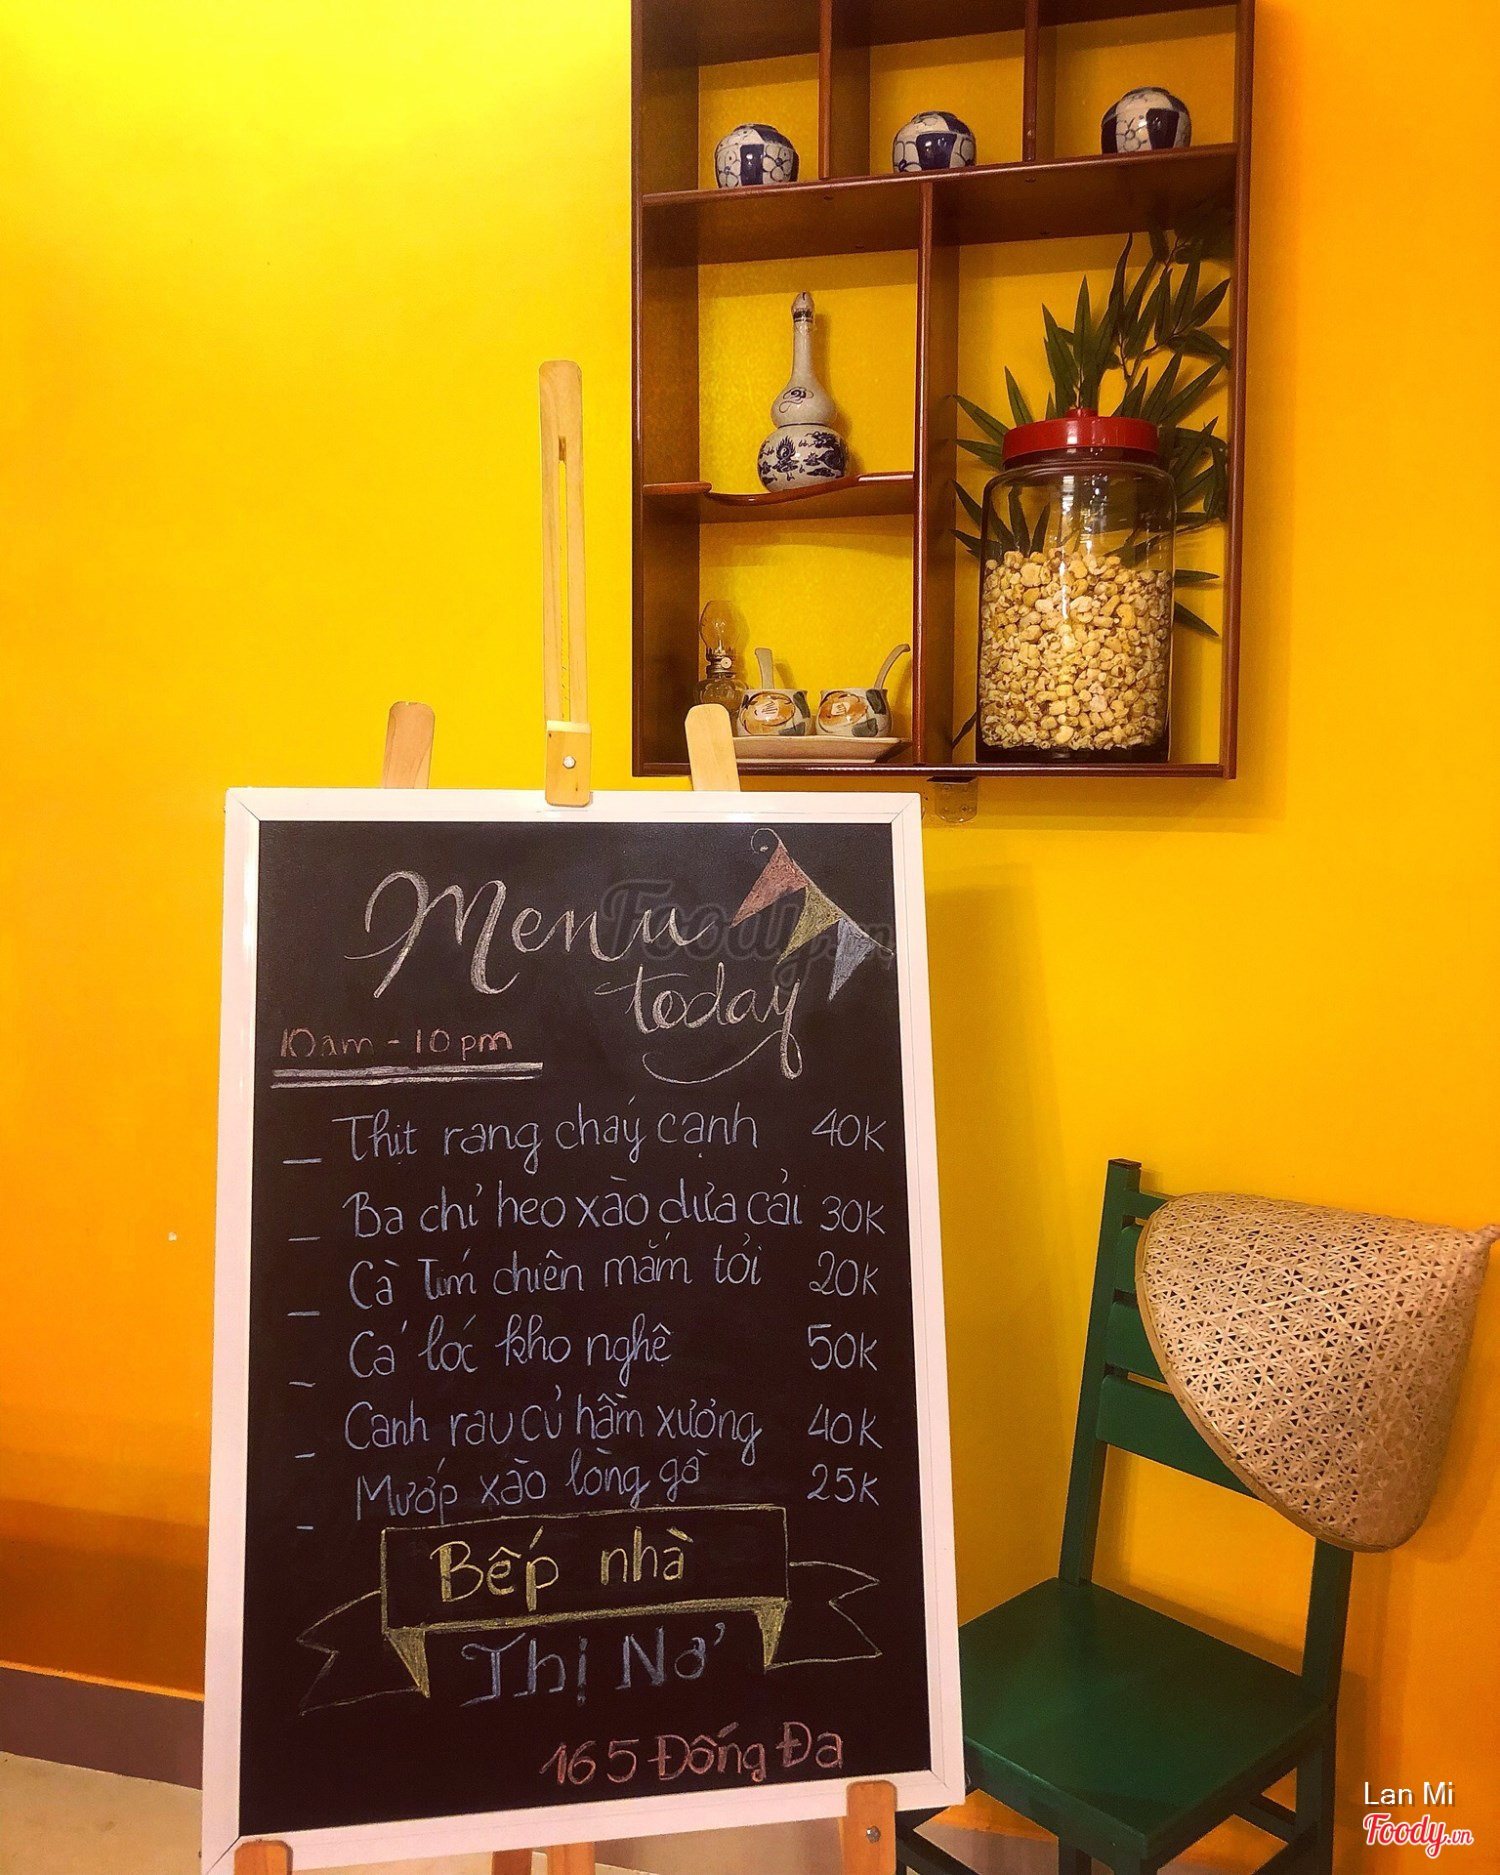 Menu
today
10am - 10pm
_ Thịt rang cháy cạnh 40K
_ Ba chỉ heo xào dưa cải 30K
_ Cà Tím chiên mắm tỏi 20K
_ Cá lóc kho nghệ 50K
_ Canh rau củ hầm xương 40K
_ Mướp xào lòng gà 25K
Bếp nhà
Thị Nở
165 Đống Đa
Foody.vn
Lan Mi
Foody.vn